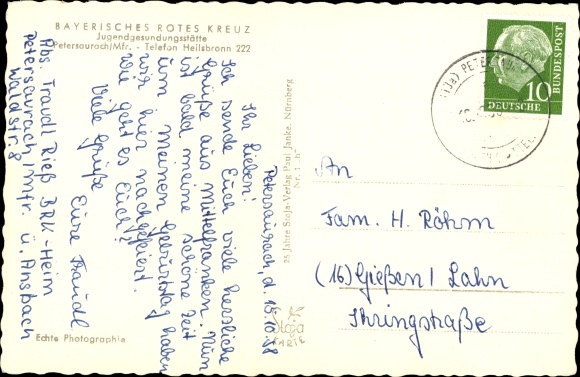 BAYERISCHES ROTES KREUZ
Jugendgesundungsstätte
Petersaurach/Mfr. - Telefon Heilsbronn 222
Petersaurach, d. 15.10.58
Ihr Lieben!
Ich sende Euch viele herzliche
Grüße aus Mittelfranken. Nun
ist bald meine schöne Zeit
um. Meinen Geburtstag haben
wir hier nachgefeiert.
Wie geht es Euch?
Viele Grüße
Eure Traudl
Abs. Traudl Rieß BRK-Heim
Petersaurach/Mfr. ü. Ansbach
Waldstr. 8
Echte Photographie
25 Jahre Stoja-Verlag Paul Janke, Nürnberg
Stoja
KARTE
10
DEUTSCHE
BUNDESPOST
(13a)
An
Fam. H. Röhm
(16) Gießen / Lahn
Ihringstraße